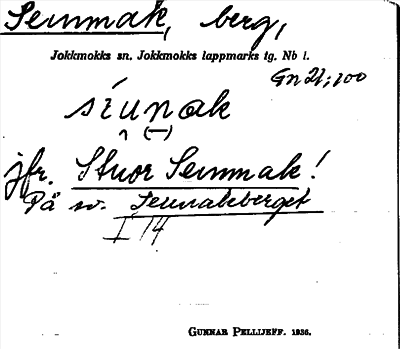 Seunnak, berg,
Jokkmokks sn. Jokkmokks lappmarks tg. Nb l.
Gn 21; 100
siunak
jfr. Stuor Seunnak!
På sv. Seunakberget
I 14
GUNNAR PELLIJEFF. 1936.